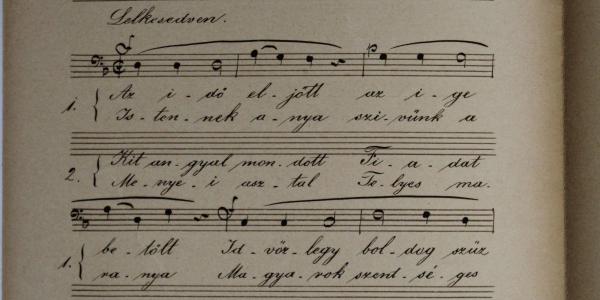 Lelkesedven.
Az i - dő el - jött az i - ge
1. { Is - ten - nek a - nya szi - vünk a
Kit an - gyal mon - dott Fi - a - dat
2. { Me - nye - i asz - tal Te - lyes ma.
be - tölt Id - vöz - légy bol - dog szűz
1. { ra - nya Ma - gya - rok szent - sé - ges